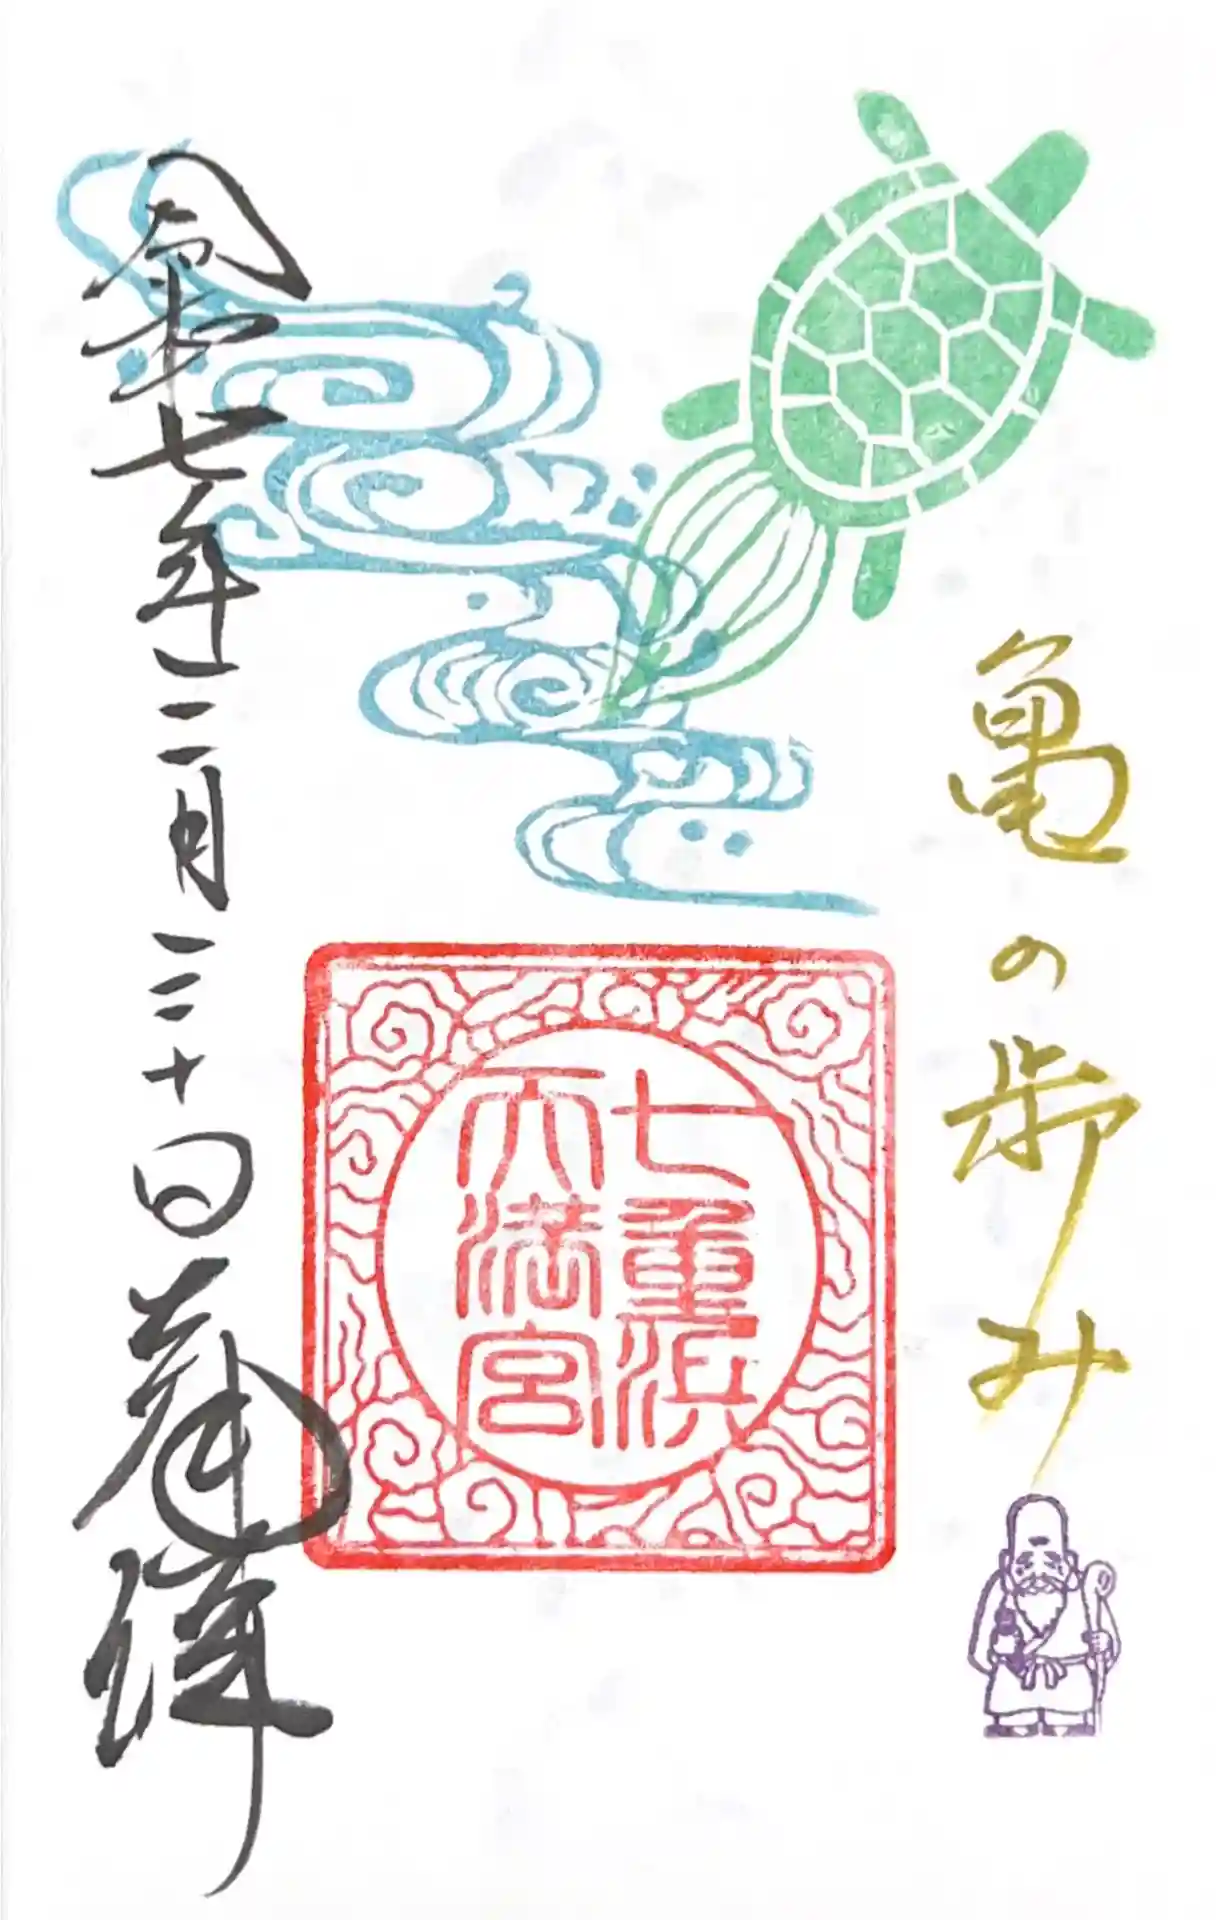 亀の歩み
七重浜
天満宮
令和七年三月三十日 奉拝